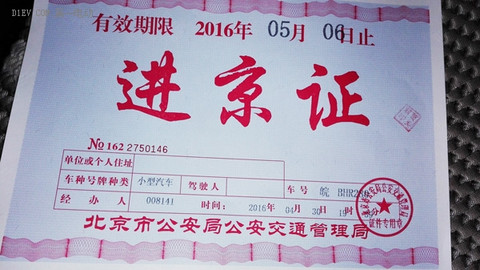 有效期限 2016年 05月 06日止
进京证
№ 162 2750146
单位或个人住址
车种号牌种类 小型汽车 驾驶人 车号 皖
经办人 008141 时间: 2016年 04月 30日 时
北京市公安局公安交通管理局
证件专用章